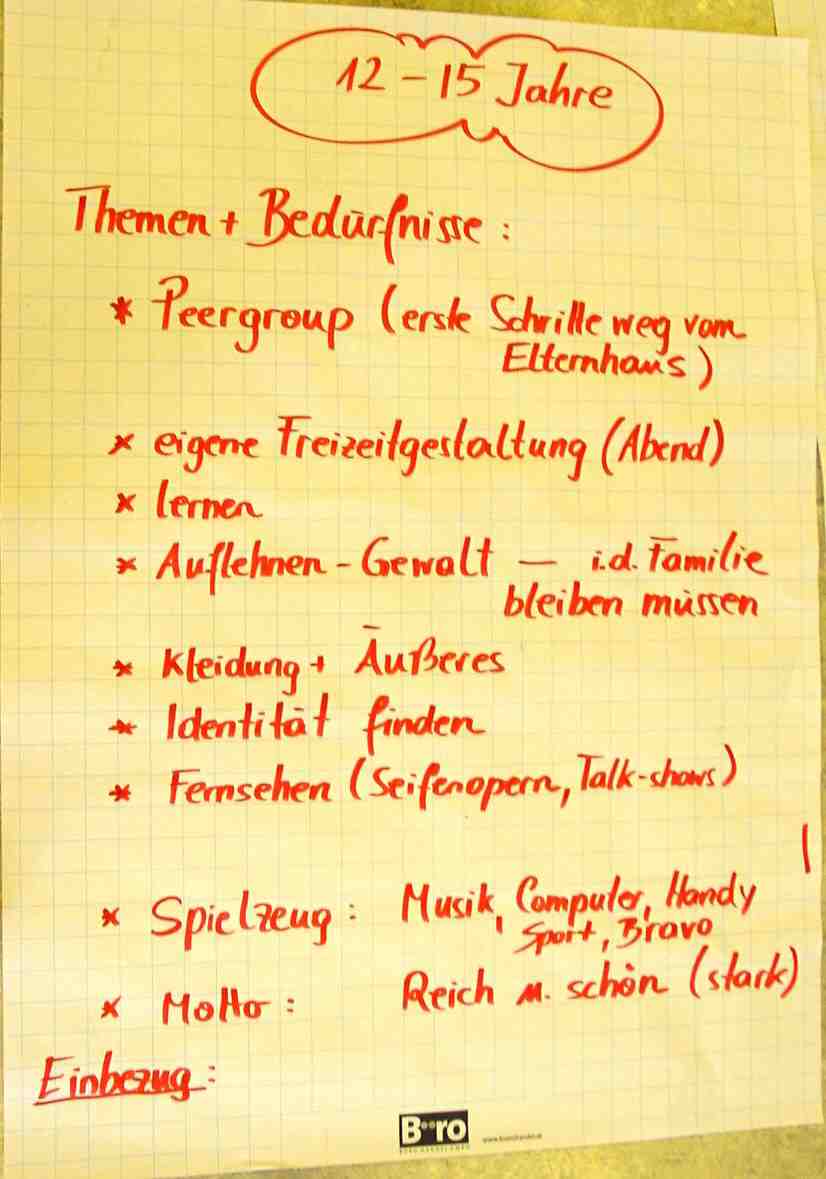 12 - 15 Jahre
Themen + Bedürfnisse :
* Peergroup (erste Schritte weg vom
Elternhaus)
* eigene Freizeitgestaltung (Abend)
* lernen
* Auflehnen - Gewalt — i.d. Familie
bleiben müssen
* Kleidung + Äußeres
* Identität finden
* Fernsehen (Seifenopern, Talk-shows)
* Spielzeug : Musik, Computer, Handy
Sport, Bravo
* Motto : Reich u. schön (stark)
Einbezug :
B••ro